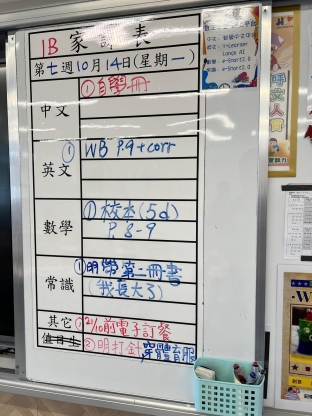 1B 家課表
第七週10月14日(星期一)
中文
①自學冊
英文
① WB P.9 + corr
數學
①校本(5d)
P.8-9
常識
①明帶第二冊書
(我長大了)
其它
①21/10前電子訂餐
值日生
②明打針,穿體育服